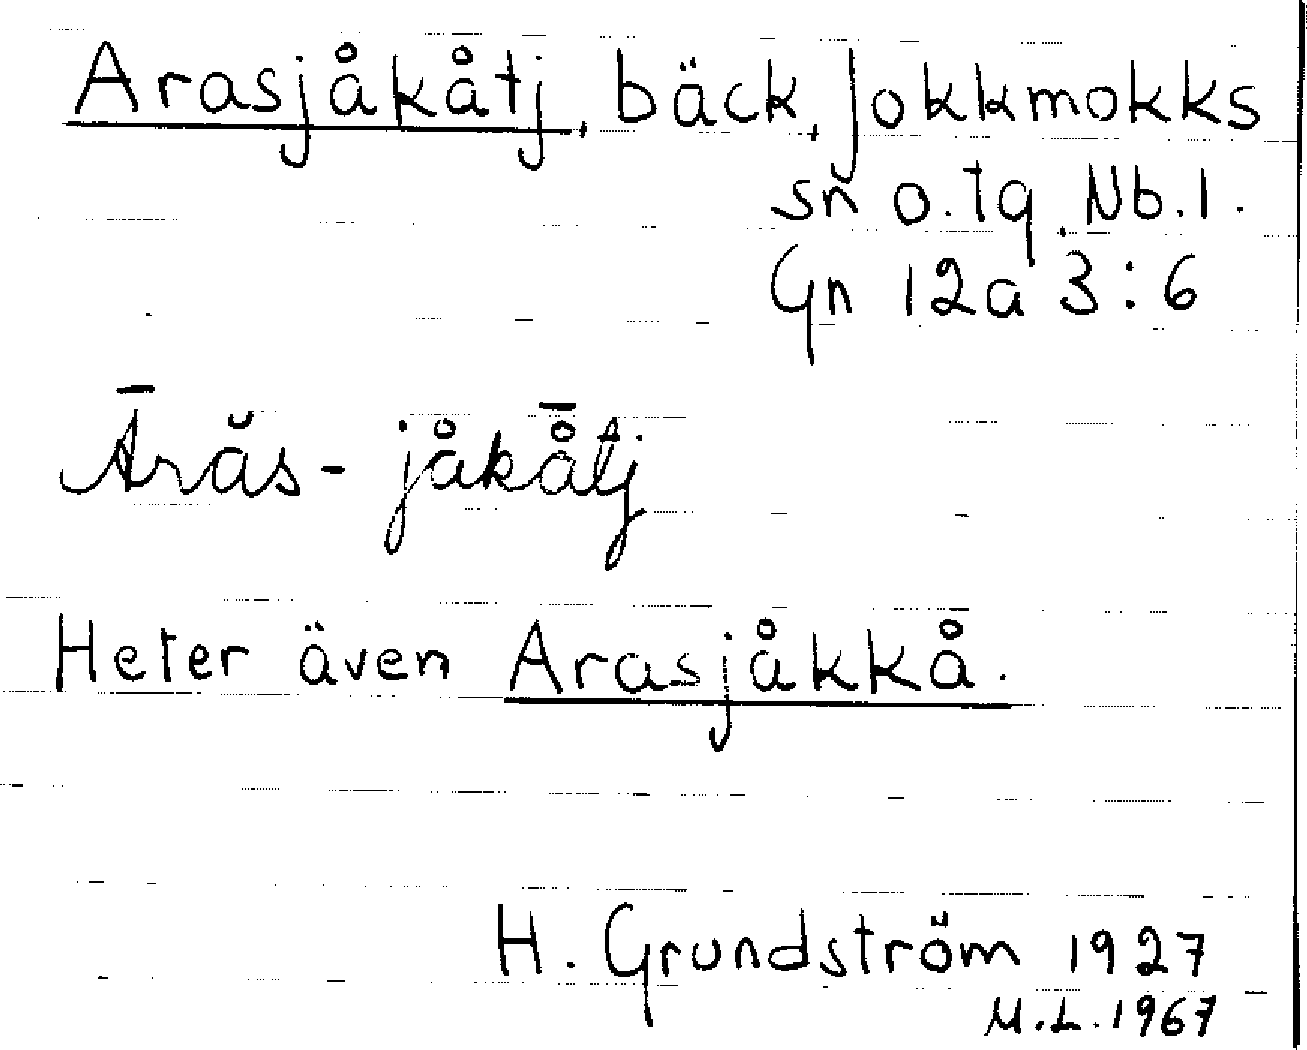 Arasjåkåtj, bäck, Jokkmokks
sn o. tg, Nb. l.
Gn 12a 3:6
Ārăs- jåkå̄tj
Heter även Arasjåkkå.
H. Grundström 1927
M.L. 1967